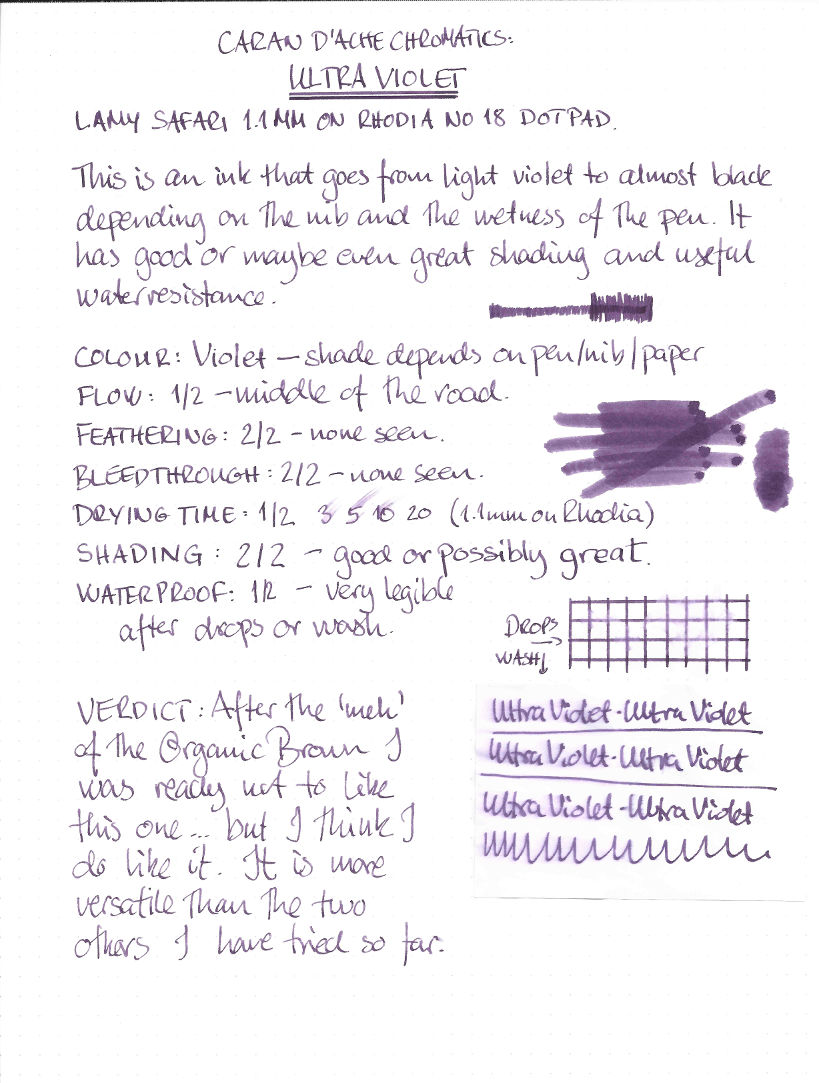 CARAN D'ACHE CHROMATICS:
ULTRA VIOLET
LAMY SAFARI 1.1 MM ON RHODIA NO 18 DOTPAD.
This is an ink that goes from light violet to almost black
depending on the nib and the wetness of the pen. It
has good or maybe even great shading and useful
waterresistance.
COLOUR: Violet – shade depends on pen/nib/paper
FLOW: 1/2 – middle of the road.
FEATHERING: 2/2 – none seen.
BLEEDTHROUGH: 2/2 – none seen.
DRYING TIME: 1/2 3 5 10 20 (1.1mm on Rhodia)
SHADING: 2/2 – good or possibly great.
WATERPROOF: 1/2 – very legible
after drops or wash.
DROPS →
WASH ↓
VERDICT: After the 'meh'
of the Organic Brown I
was ready not to like
this one... but I think I
do like it. It is more
versatile than the two
others I have tried so far.
Ultra Violet - Ultra Violet
Ultra Violet - Ultra Violet
Ultra Violet - Ultra Violet